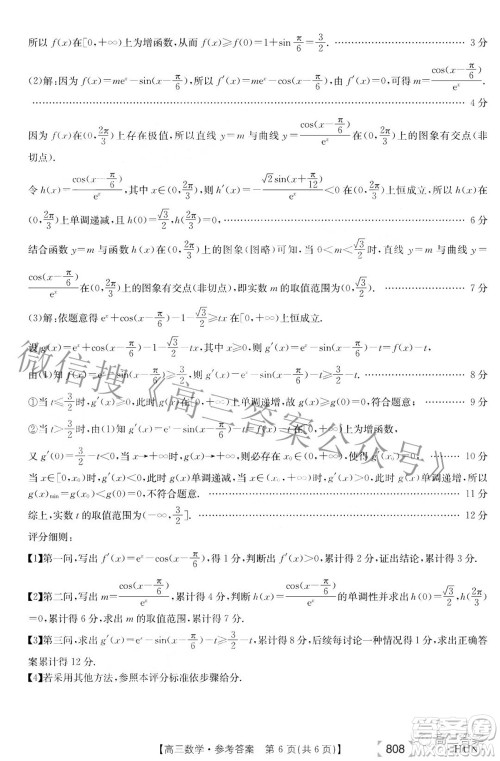 所以 f(x)在[0,+∞)上为增函数,从而 f(x)≥f(0)=1+sin π/6=3/2. ………… 3分
(2)解:因为 f(x)=meˣ-sin(x-π/6),所以 f′(x)=meˣ-cos(x-π/6),由 f′(x)=0,可得 m=cos(x-π/6)/eˣ.
………… 4分
因为 f(x)在(0,2π/3)上存在极值,所以直线 y=m 与曲线 y=cos(x-π/6)/eˣ 在(0,2π/3)上的图象有交点(非
切点).
令 h(x)=cos(x-π/6)/eˣ,其中 x∈(0,2π/3),则 h′(x)=-√2sin(x+π/12)/eˣ<0 在(0,2π/3)上恒成立,所以 h(x)在
(0,2π/3)上单调递减,且 h(0)=√3/2,h(2π/3)=0. ………… 6分
结合函数 y=m 与 h(x)在(0,2π/3)上的图象(图略)可知,当 0<m<√3/2时,直线 y=m 与曲线 y=
cos(x-π/6)/eˣ 在(0,2π/3)上的图象有交点(非切点),即实数 m 的取值范围为(0,√3/2). ………… 7分
(3)解:依题意得 eˣ+cos(x-π/6)-1-√3/2≥tx 在[0,+∞)上恒成立.
设 g(x)=eˣ+cos(x-π/6)-1-√3/2-tx,则 g′(x)=eˣ-sin(x-π/6)-t,
由(1)知 f(x)=eˣ-sin(x-π/6)≥3/2,所以 g′(x)=eˣ-sin(x-π/6)-t≥3/2-t. ………… 8分
①当 t≤3/2时,g′(x)≥0,g(x)在[0,+∞)上单调递增,g(x)≥g(0)=0,符合题意; ………… 9分
②当 t>3/2时,g′(x)在[0,+∞)上单调递增,
又 g′(0)=3/2-t<0,当 x→+∞时,g′(x)→+∞,所以存在 x₀∈(0,+∞),使得 g′(x₀)=0, ………… 10分
当 x∈[0,x₀)时,g(x)单调递减,当 x∈(x₀,+∞)时,g(x)单调递增,所以
g(x)min=g(x₀)<g(0)=0,不符合题意. ………… 11分
综上,实数 t 的取值范围为(-∞,3/2]. ………… 12分
评分细则:
【1】第一问,写出 f′(x)=eˣ-cos(x-π/6),得1分,判断出 f′(x)>0,累计得2分,求出最小值,累计得3分.
【2】第二问,写出 m=cos(x-π/6)/eˣ,累计得4分,判断出 h(x)=cos(x-π/6)/eˣ 的单调性并求出 h(0)=√3/2,h(2π/3)
=0,累计得6分,求出 m 的取值范围,累计得7分.
【3】第三问,求出 g′(x)=eˣ-sin(x-π/6)-t≥3/2-t,累计得8分,后面讨论时,每种情况各2分,求出正确答
案累计得12分.
【4】若采用其他方法,参照本评分标准依步骤给分.
【高三数学·参考答案 第6页(共6页)】
808
·HUN·
微信搜《高三答案公众号》